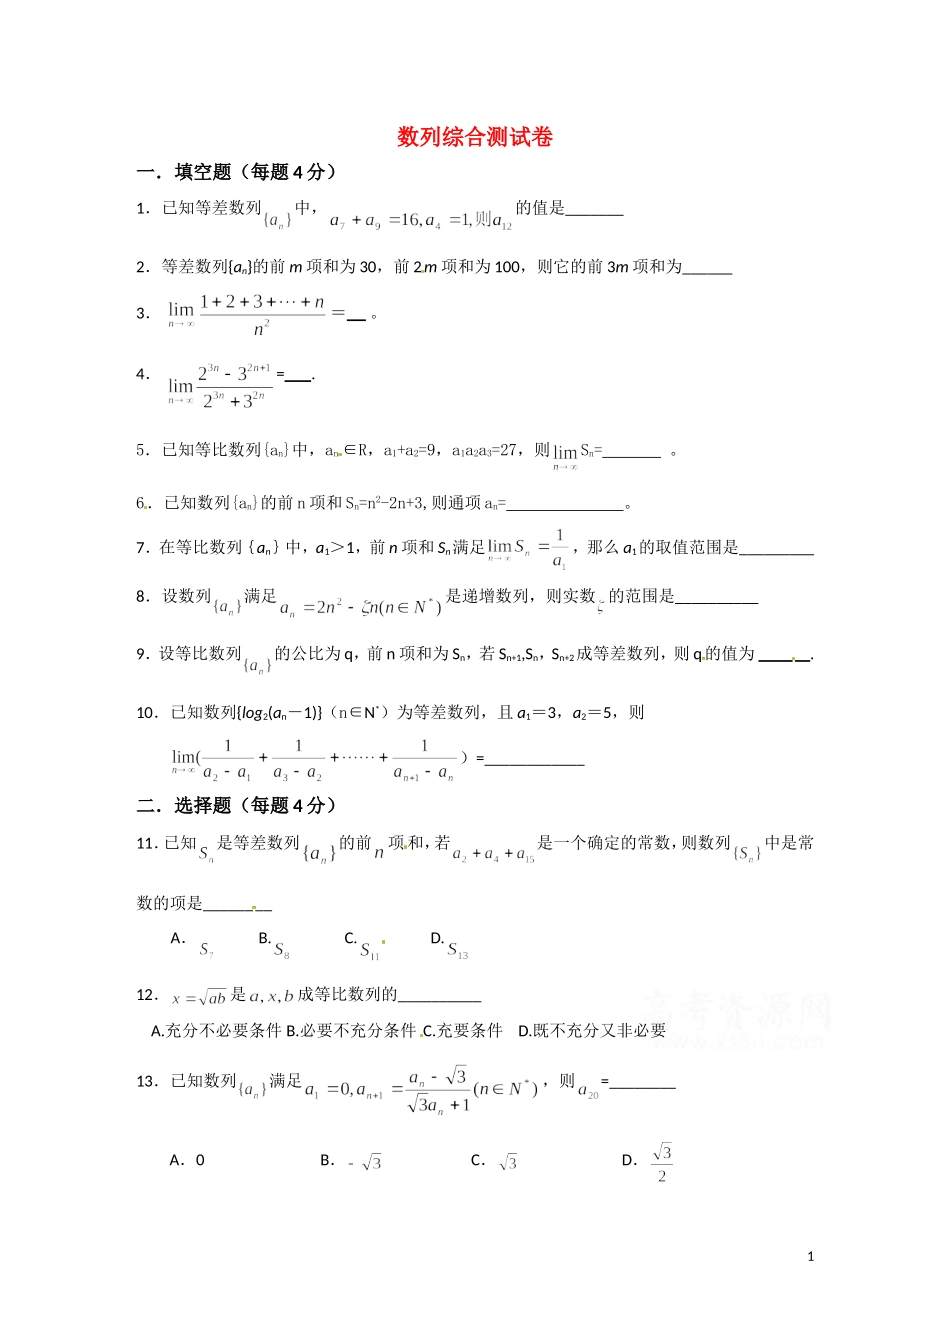 数列综合测试卷
一．填空题（每题 4 分）
1．已知等差数列{aₙ}中，a₇+a₉=16,a₄=1,则a₁₂的值是_______
2．等差数列{aₙ}的前 m 项和为 30，前 2m 项和为 100，则它的前 3m 项和为______
3． lim(n→∞) (1+2+3+⋯+n)/n² =__ 。
4． lim(n→∞) (2³ⁿ-3²ⁿ⁺¹)/(2³ⁿ+3²ⁿ) =___.
5．已知等比数列{aₙ}中，aₙ∈R，a₁+a₂=9，a₁a₂a₃=27，则lim(n→∞) Sₙ=_______ 。
6．已知数列{aₙ}的前 n 项和 Sₙ=n²-2n+3,则通项 aₙ=______________。
7．在等比数列｛aₙ｝中，a₁＞1，前 n 项和 Sₙ满足lim(n→∞) Sₙ=1/a₁，那么 a₁的取值范围是_________
8．设数列{aₙ}满足aₙ=2n²-ζn(n∈N*)是递增数列，则实数ζ的范围是__________
9．设等比数列{aₙ}的公比为 q，前 n 项和为 Sₙ，若 Sₙ₊₁,Sₙ，Sₙ₊₂成等差数列，则 q的值为 ______.
10．已知数列{log₂(aₙ－1)}（n∈N*）为等差数列，且 a₁＝3，a₂＝5，则
lim(n→∞) (1/(a₂-a₁)+1/(a₃-a₂)+⋯⋯+1/(aₙ₊₁-aₙ)）=____________
二．选择题（每题 4 分）
11．已知Sₙ是等差数列{aₙ}的前n项和，若a₂+a₄+a₁₅是一个确定的常数，则数列{Sₙ}中是常
数的项是________
A．S₇ B.S₈ C.S₁₁ D.S₁₃
12．x=√ab是a,x,b成等比数列的__________
A.充分不必要条件 B.必要不充分条件 C.充要条件 D.既不充分又非必要
高考资源网
www.ks5u.com
13．已知数列{aₙ}满足a₁=0,aₙ₊₁=(aₙ-√3)/(√3aₙ+1)(n∈N*)，则a₂₀=________
A．0 B．-√3 C．√3 D．√3/2
1